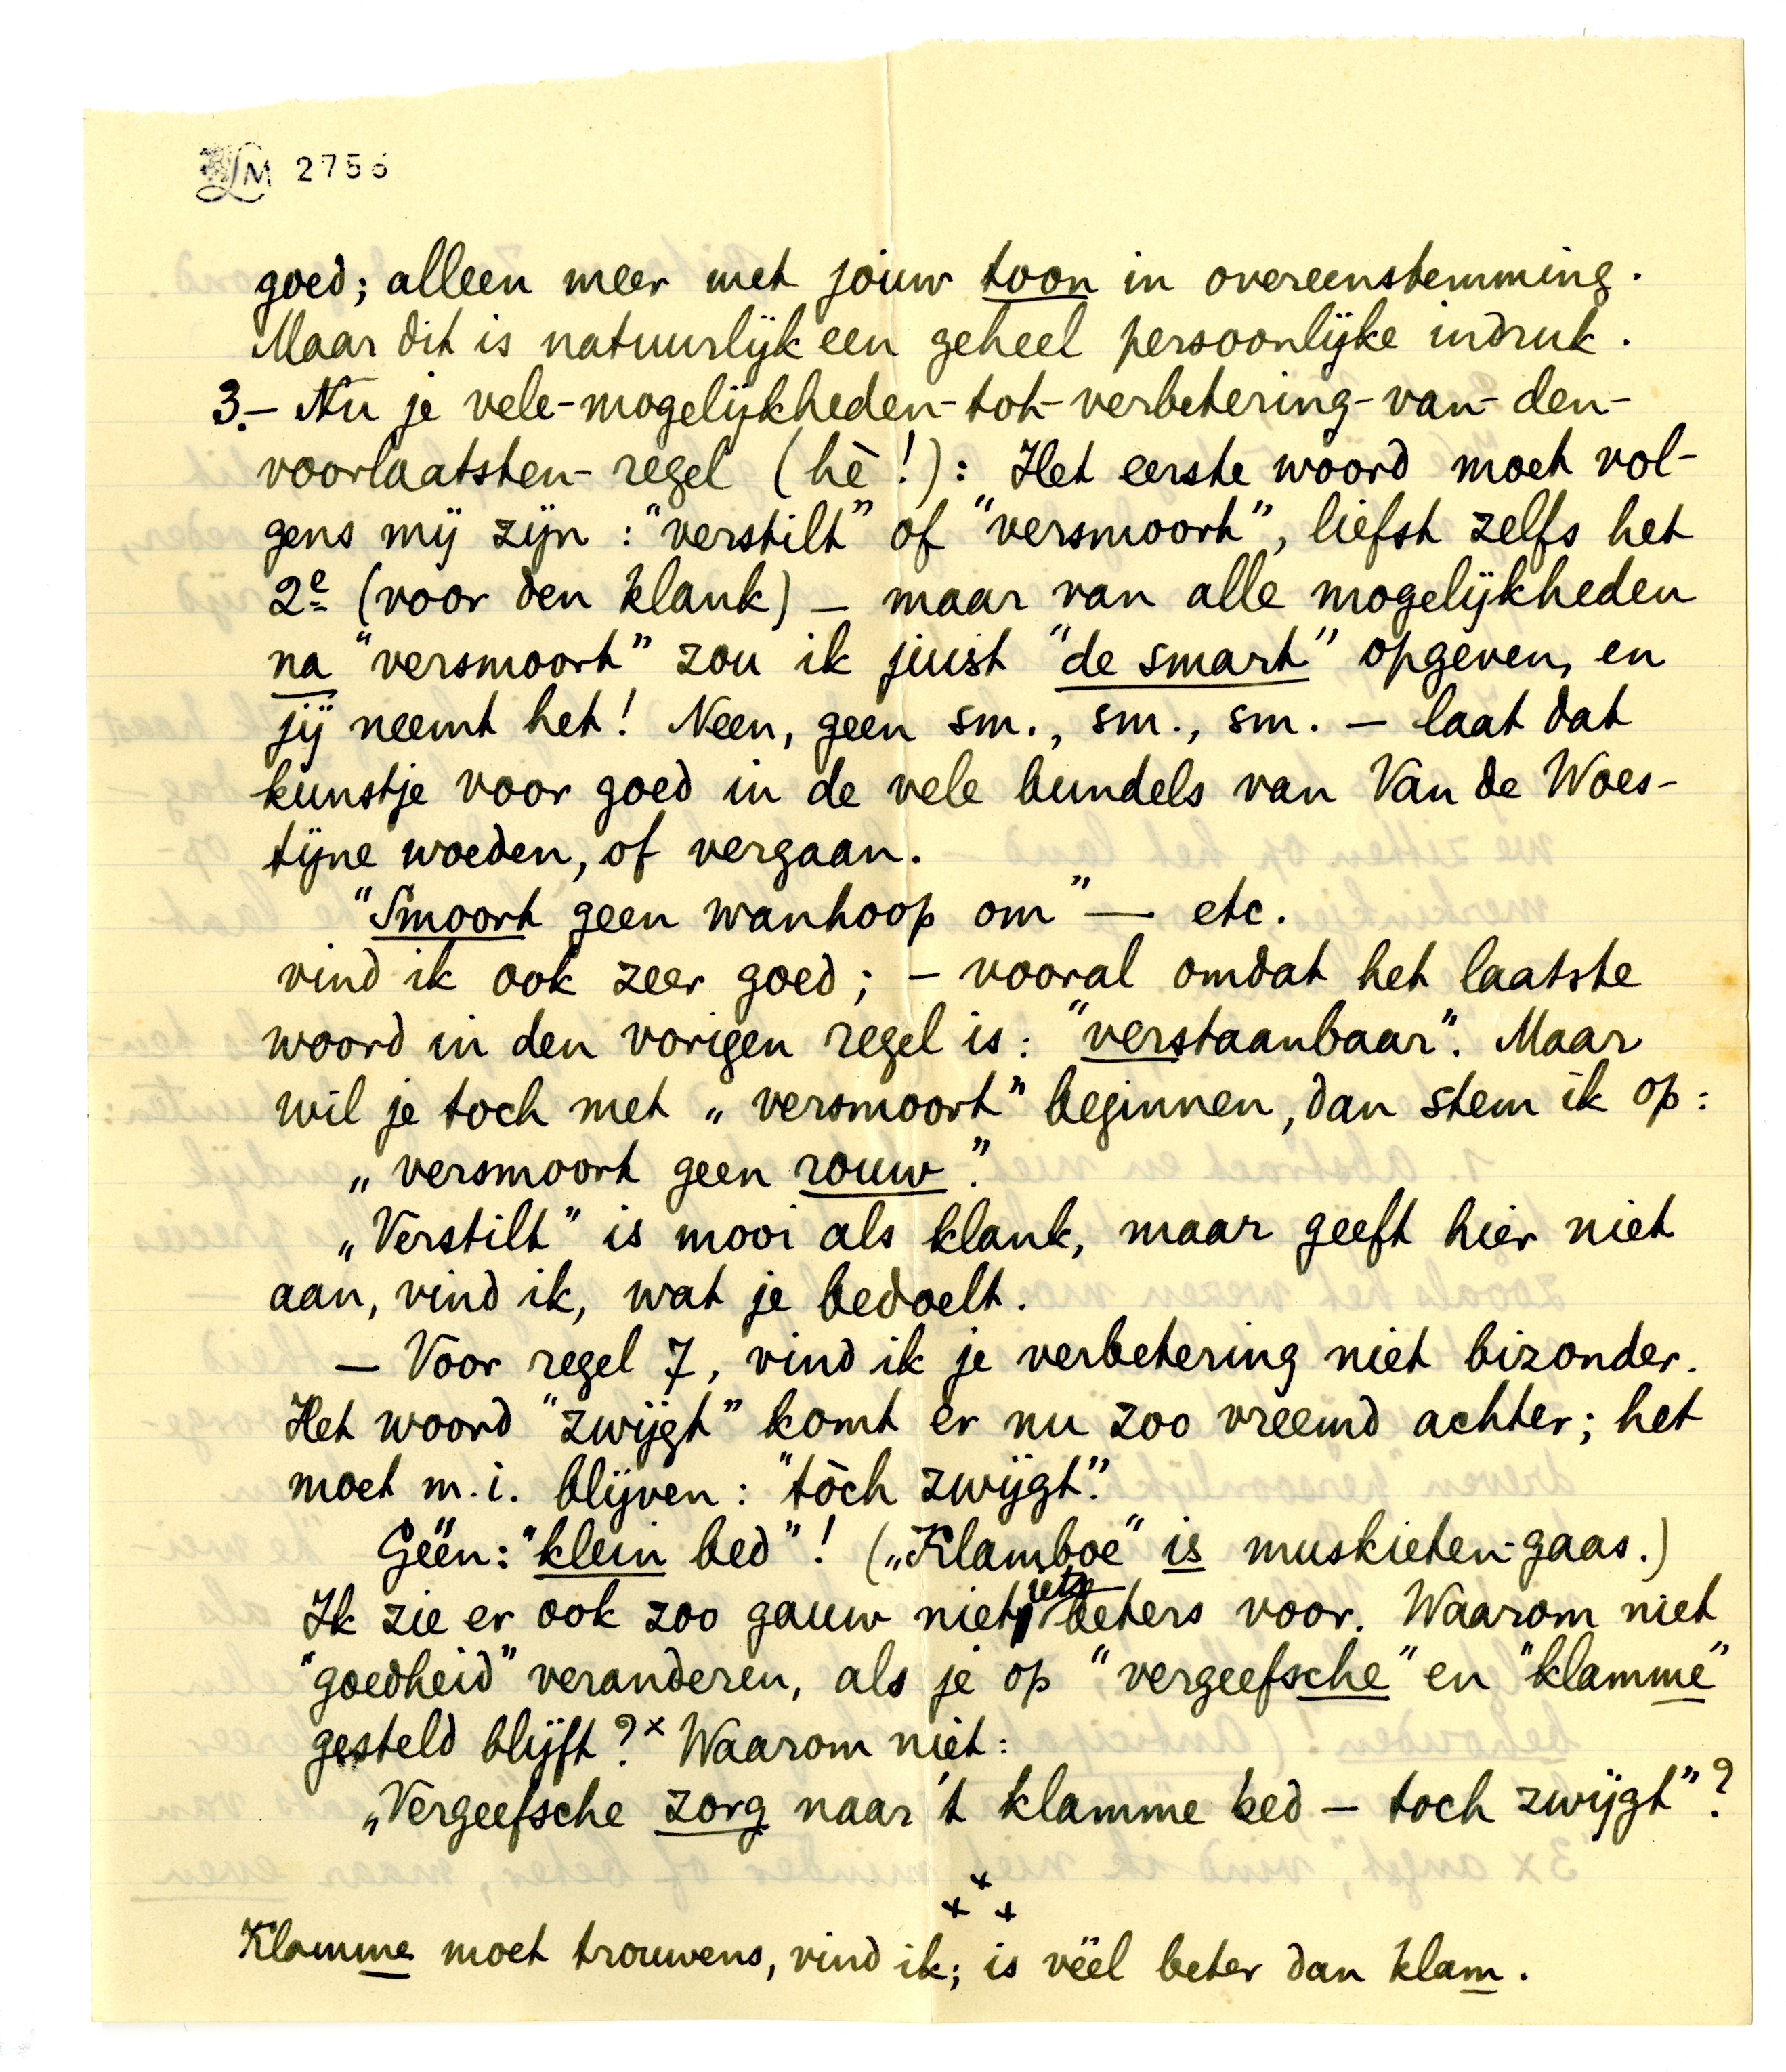 LM 2756
goed; alleen meer met jouw toon in overeenstemming.
Maar dit is natuurlijk een geheel persoonlijke indruk.
3.– Nu je vele-mogelijkheden-tot-verbetering-van-den-
voorlaatsten-regel (hè!): Het eerste woord moet vol-
gens mij zijn: "verstilt" of "versmoort", liefst zelfs het
2e (voor den klank) – maar van alle mogelijkheden
na "versmoort" zou ik juist "de smart" opgeven, en
jij neemt het! Neen, geen sm., sm., sm. – laat dat
kunstje voor goed in de vele bundels van Van de Woes-
tijne woeden, of vergaan.
"Smoort geen wanhoop om" — etc.
vind ik ook zeer goed; – vooral omdat het laatste
woord in den vorigen regel is: "verstaanbaar". Maar
wil je toch met „versmoort" beginnen, dan stem ik op:
„versmoort geen rouw".
„Verstilt" is mooi als klank, maar geeft hier niet
aan, vind ik, wat je bedoelt.
— Voor regel 7, vind ik je verbetering niet bizonder.
Het woord "zwijgt" komt er nu zoo vreemd achter; het
moet m.i. blijven: "tòch zwijgt".
Géén: "klein bed"! („Klamboe" is muskieten-gaas.)
Ik zie er ook zoo gauw niet iets beters voor. Waarom niet
"goedheid" veranderen, als je op "vergeefsche" en "klamme"
gesteld blijft?x Waarom niet:
„Vergeefsche zorg naar 't klamme bed – toch zwijgt"?
+ + +
Klamme moet trouwens, vind ik; is véél beter dan klam.